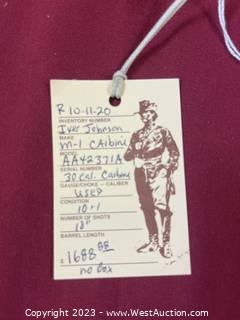 R 10-11-20
INVENTORY NUMBER
Iver Johnson
MAKE
M-1 Carbine
MODEL
AA42371A
SERIAL NUMBER
30 Cal. Carbine
GAUGE/CHOKE - CALIBER
Used
CONDITION
10+1
NUMBER OF SHOTS
18"
BARREL LENGTH
$ 1688
no box
Copyright 2023 - www.WestAuction.com